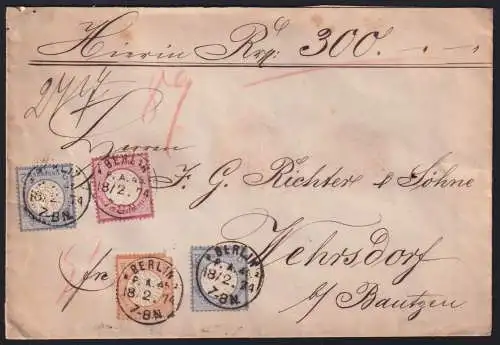 Hierin Rℳ: 300. . -
Herrn
J. G. Richter & Söhne
fro
Wehrsdorf
b/ Bautzen
BERLIN
P. A. 4
18/2. 74
7-8N.
BERLIN
P. A.
18/2. 74
18/2. 74
7-8N.
BERLIN
P. A. 4
18/2. 74
7-8N.